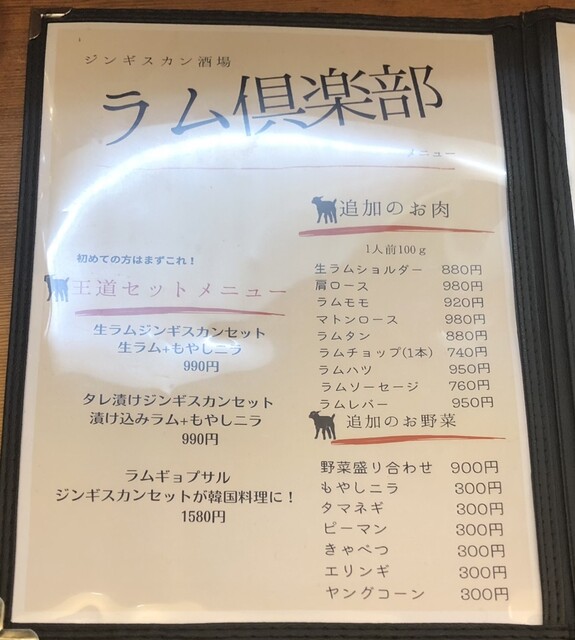 ジンギスカン酒場
ラム倶楽部
メニュー
初めての方はまずこれ！
王道セットメニュー
生ラムジンギスカンセット
生ラム+もやしニラ
990円
タレ漬けジンギスカンセット
漬け込みラム+もやしニラ
990円
ラムギョプサル
ジンギスカンセットが韓国料理に！
1580円
追加のお肉
1人前100g
生ラムショルダー 880円
肩ロース 980円
ラムモモ 920円
マトンロース 980円
ラムタン 880円
ラムチョップ(1本) 740円
ラムハツ 950円
ラムソーセージ 760円
ラムレバー 950円
追加のお野菜
野菜盛り合わせ 900円
もやしニラ 300円
タマネギ 300円
ピーマン 300円
きゃべつ 300円
エリンギ 300円
ヤングコーン 300円